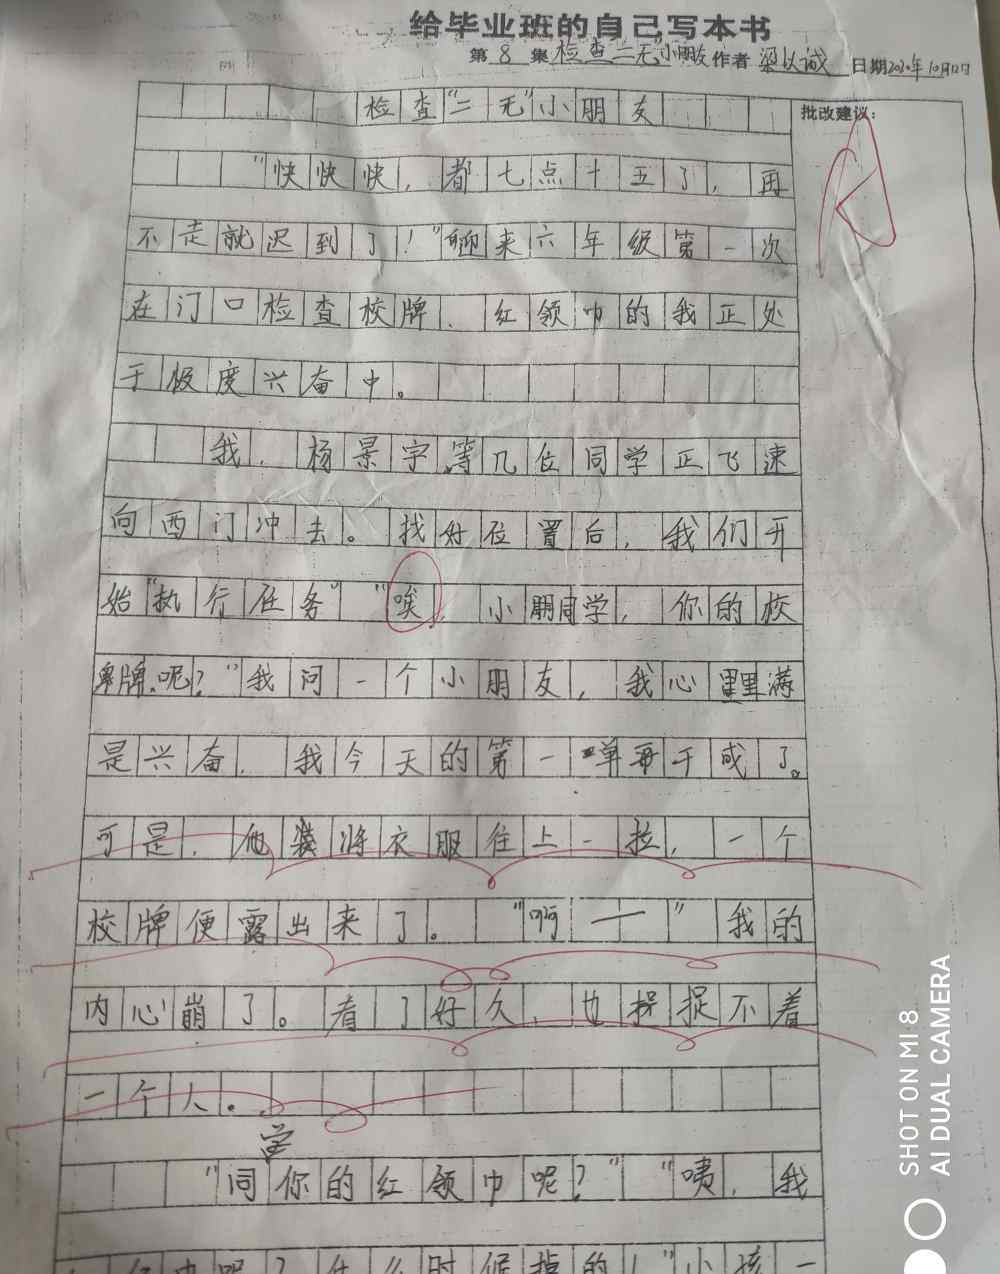 给毕业班的自己写本书
第8集检查二无小朋友作者梁以诚日期2020年10月12日
批改建议：
检查“二无”小朋友
“快快快，都七点十五了，再
不走就迟到了！”迎来六年级第一次
在门口检查校牌、红领巾的我正处
于极度兴奋中。
我、杨景宇等几位同学正飞速
向西门冲去。找好位置后，我们开
始“执行任务”“唉，小朋同学，你的校
牌呢？”我问一个小朋友，我心里满
是兴奋，我今天的第一单要干成了。
可是，他将衣服往上一拉，一个
校牌便露出来了。“啊——”我的
内心崩了。看了好久，也捉不着
一个人。
“同学你的红领巾呢？”“咦，我
小孩一
SHOT ON MI 8
AI DUAL CAMERA